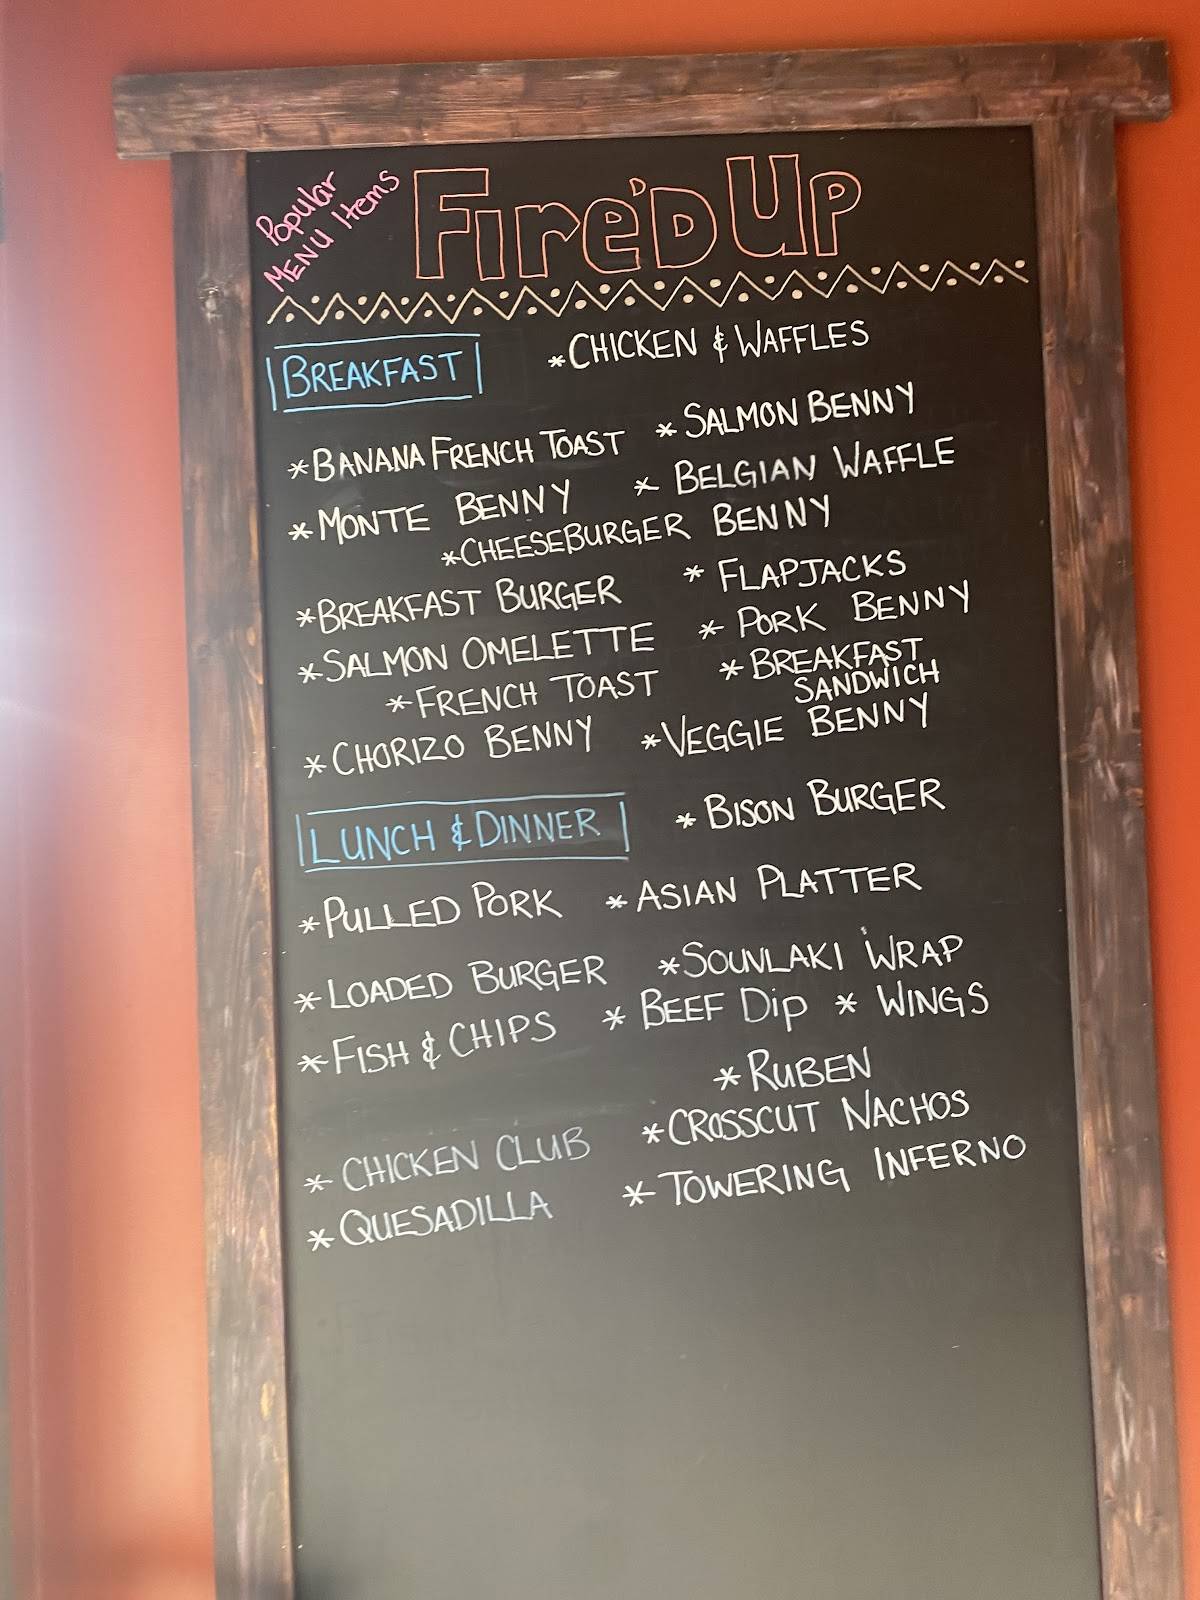 Popular
Menu Items
Fire'd Up
BREAKFAST
*CHICKEN & WAFFLES
*BANANA FRENCH TOAST
*SALMON BENNY
*MONTE BENNY
*BELGIAN WAFFLE
*CHEESEBURGER BENNY
*BREAKFAST BURGER
*FLAPJACKS
*SALMON OMELETTE
*PORK BENNY
*FRENCH TOAST
*BREAKFAST
SANDWICH
*CHORIZO BENNY
*VEGGIE BENNY
LUNCH & DINNER
*BISON BURGER
*PULLED PORK
*ASIAN PLATTER
*LOADED BURGER
*SOUVLAKI WRAP
*FISH & CHIPS
*BEEF Dip *WINGS
*RUBEN
*CHICKEN CLUB
*CROSSCUT NACHOS
*QUESADILLA
*TOWERING INFERNO